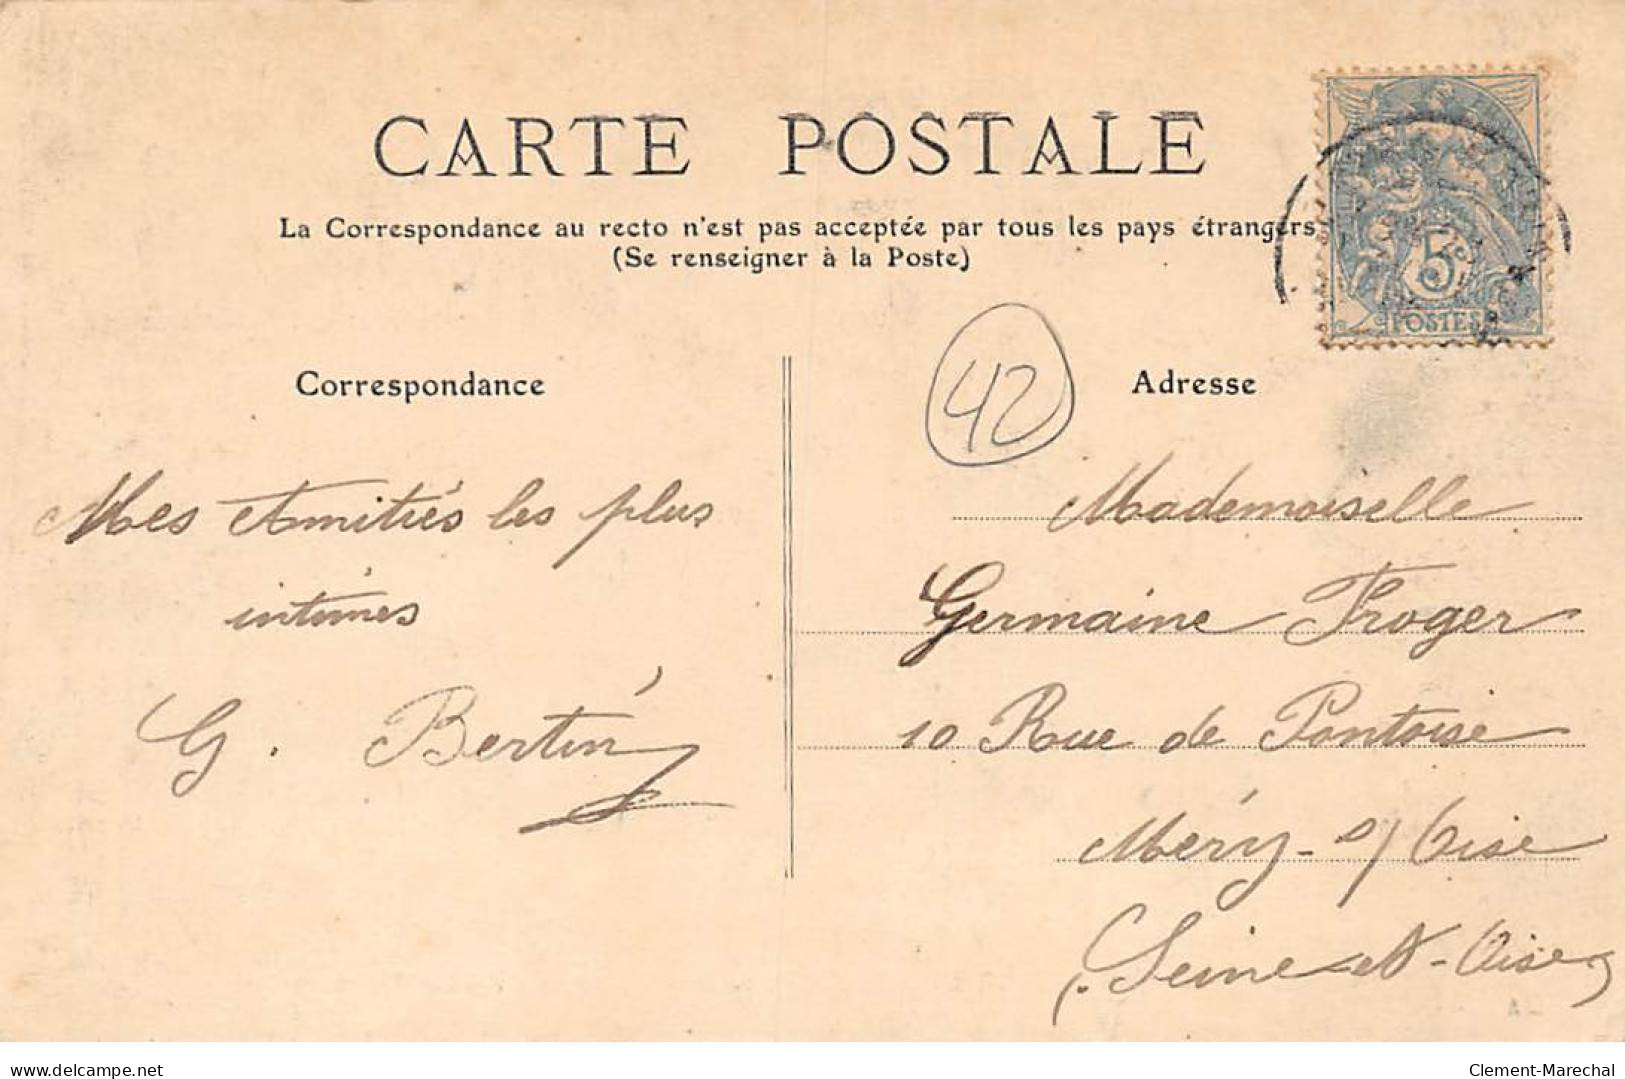 CARTE POSTALE
La Correspondance au recto n'est pas acceptée par tous les pays étrangers
(Se renseigner à la Poste)
5
POSTES
Correspondance
42
Adresse
Mes Amitiés les plus
intimes
G. Bertin
Mademoiselle
Germaine Froger
10 Rue de Pontoise
Méry-s/Oise
(Seine-et-Oise)
delcampe.net
Clement-Marechal